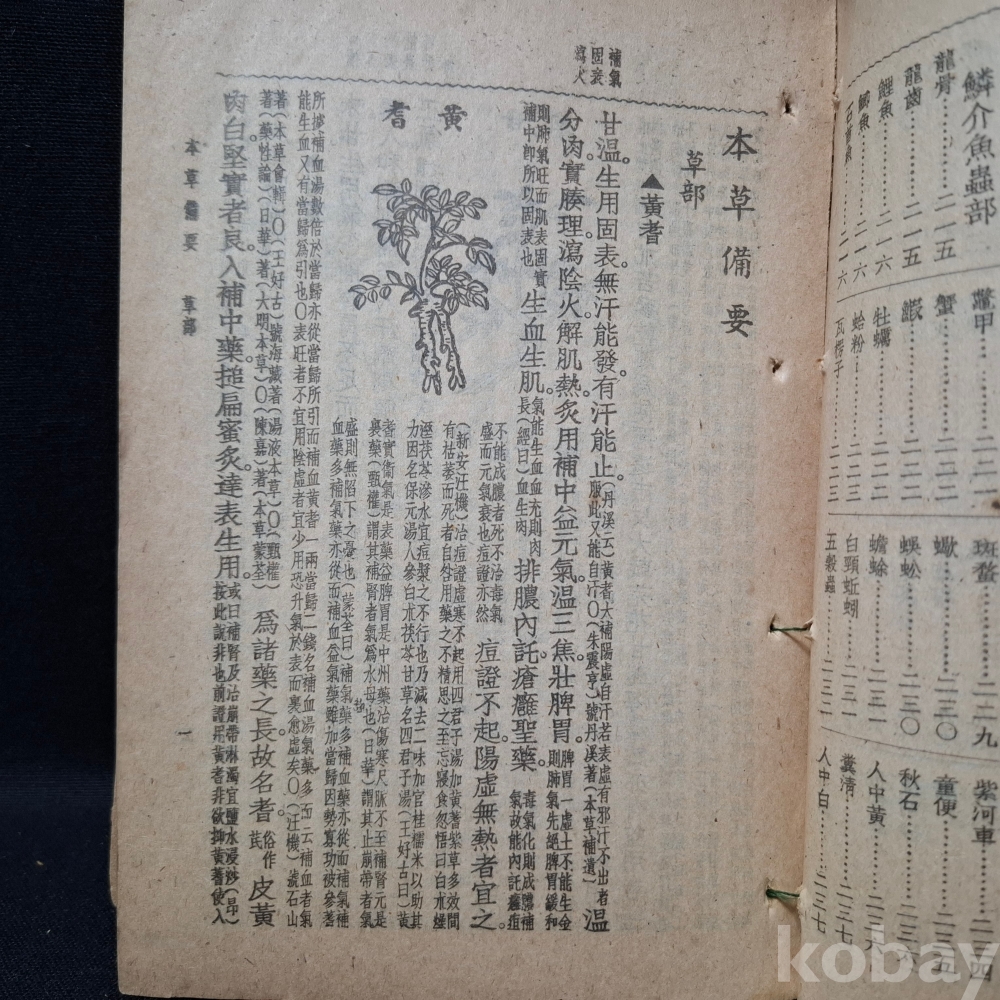 補氣
固表
瀉火
本草備要
草部
▲黃耆
甘溫。生用固表。無汗能發。有汗能止。(丹溪云)黃耆大補陽虛自汗若表虛有邪汗不出者服此又能自汗〇(朱震亨)號丹溪著(本草補遺)溫
分肉。實腠理。瀉陰火。解肌熱。炙用補中。益元氣。溫三焦。壯脾胃。脾胃一虛土不能生金則肺氣先絕脾胃緩和
則肺氣旺而肌表固實補中即所以固表也生血生肌。氣能生血血充則肉長(經曰)血生肉排膿內託。瘡癰聖藥。毒氣化則成膿補氣故能內託癰疽
不能成膿者死不治毒氣盛而元氣衰也痘證亦然痘證不起。陽虛無熱者宜之。
(新安汪機)治痘證虛寒不起用四君子湯加黃耆紫草多效間
有枯萎而死者自咎用藥之不精思之至忘寢食忽悟曰白朮燥
溼茯苓滲水宜痘漿之不行也乃減去二味加官桂糯米以助其
力因名保元湯人參白朮茯苓甘草名四君子湯(王好古曰)黃
耆實衞氣是表藥益脾胃是中州藥治傷寒尺脈不至補腎元是
裏藥(甄權)謂其補腎者氣爲水母也(日華)謂其止崩帶者氣
盛則無陷下之憂也(蒙荃曰)補氣藥多補血藥亦從而補氣補
血藥多補氣藥亦從而補血益氣藥雖加當歸因勢寡功被參耆
黃耆
所據補血湯數倍於當歸亦從當歸所引而補血黃耆一兩當歸二錢名補血湯氣藥多而云補血者氣
能生血又有當歸爲引也〇表旺者不宜用陰虛者宜少用恐升氣於表而裏愈虛矣〇(汪機)號石山
著(本草會輯)〇(王好古)號海藏著(湯液本草)〇(甄權)
著(藥性論)(日華)著(大明本草)〇(陳嘉)著(本草蒙荃)爲諸藥之長。故名耆。俗作芪皮黃
肉白堅實者良。入補中藥。搥扁蜜炙。達表生用。或曰補腎及治崩帶淋濁宜鹽水浸炒(昂)按此說非也前證用黃耆非欲抑黃耆使入
本草備要 草部 一
鱗介魚蟲部
龍骨……二一五
龍齒……二一五
鯉魚……二一六
鯽魚……二一六
鼈甲
蟹……二二一
蝦……二二一
牡蠣……二二二
蛤粉……二二三
瓦楞子……二二三
斑蝥……二二九
蠍……二三〇
蜈蚣……二三〇
蟾蜍……二三一
白頸蚯蚓……二三一
五穀蟲……二三一
紫河車
童便
秋石
人中黃
糞清……二三七
人中白……二三七
kobay